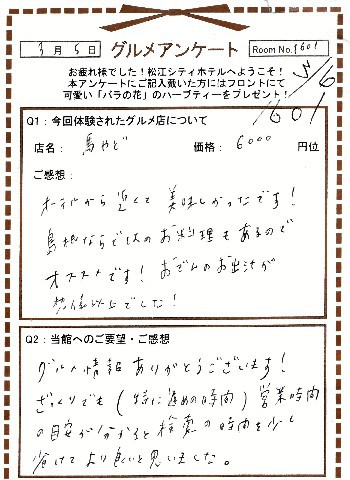 3月5日 グルメアンケート Room No. 1601
お疲れ様でした！松江シティホテルへようこそ！
本アンケートにご記入戴いた方にはフロントにて
可愛い「バラの花」のハーブティーをプレゼント！
Q1：今回体験されたグルメ店について
店名： 島やど 価格： 6000 円位
ご感想：
ホテルから近くて美味しかったです！
島根ならではのお料理もあるので
オススメです！おでんのお出汁が
想像以上でした！
Q2：当館へのご要望・ご感想
グルメ情報ありがとうございます！
ざっくりでも（特に遅めの時間）営業時間
の目安が分かると検索の時間を少し
省けてより良いと思いました。